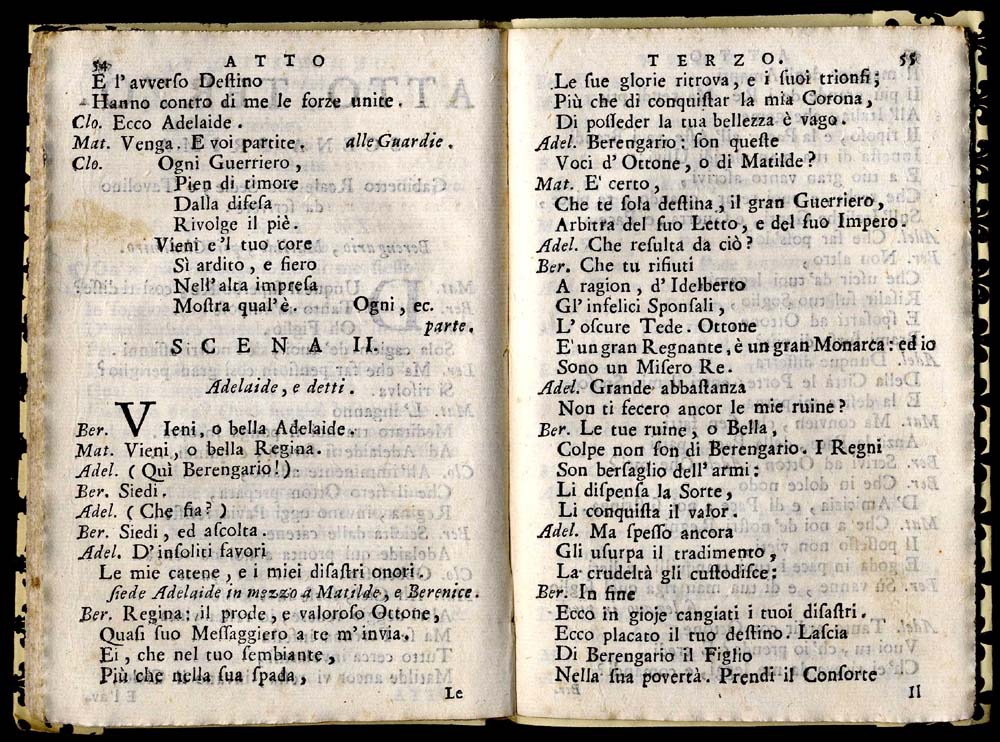 54 ATTO
E l'avverſo Deſtino
Hanno contro di me le forze unite.
Clo. Ecco Adelaide.
Mat. Venga. E voi partite. alle Guardie.
Clo. Ogni Guerriero,
Pien di timore
Dalla difeſa
Rivolge il piè.
Vieni e 'l tuo core
Sì ardito, e fiero
Nell'alta impreſa
Moſtra qual'è. Ogni, ec.
parte.
SCENA II.
Adelaide, e detti.
Ber. VIeni, o bella Adelaide.
Mat. Vieni, o bella Regina.
Adel. (Quì Berengario!)
Ber. Siedi.
Adel. (Che fia?)
Ber. Siedi, ed aſcolta.
Adel. D'inſoliti favori
Le mie catene, e i miei diſaſtri onori.
ſiede Adelaide in mezzo a Matilde, e Berenice.
Ber. Regina: il prode, e valoroſo Ottone,
Quaſi ſuo Meſſaggiero a te m'invia.
Ei, che nel tuo ſembiante,
Più che nella ſua ſpada,
Le
TERZO. 55
Le ſue glorie ritrova, e i ſuoi trionfi;
Più che di conquiſtar la mia Corona,
Di poſſeder la tua bellezza è vago.
Adel. Berengario: ſon queſte
Voci d'Ottone, o di Matilde?
Mat. E' certo,
Che te ſola deſtina, il gran Guerriero,
Arbitra del ſuo Letto, e del ſuo Impero.
Adel. Che reſulta da ciò?
Ber. Che tu rifiuti
A ragion, d'Idelberto
Gl'infelici Sponſali,
L'oſcure Tede. Ottone
E' un gran Regnante, è un gran Monarca: ed io
Sono un Miſero Re.
Adel. Grande abbaſtanza
Non ti fecero ancor le mie ruine?
Ber. Le tue ruine, o Bella,
Colpe non ſon di Berengario. I Regni
Son berſaglio dell'armi:
Li diſpenſa la Sorte,
Li conquiſta il valor.
Adel. Ma ſpeſſo ancora
Gli uſurpa il tradimento,
La crudeltà gli cuſtodiſce:
Ber. In fine
Ecco in gioje cangiati i tuoi diſaſtri.
Ecco placato il tuo deſtino. Laſcia
Di Berengario il Figlio
Nella ſua povertà. Prendi il Conſorte
Il